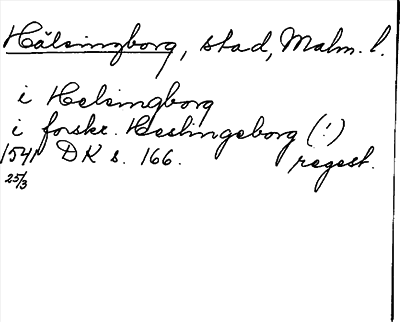 Hälsingborg, stad, Malm. l.
i Helsingborg
i forskr. Heslingeborg (!)
1541 DK s. 166. regest.
25/3